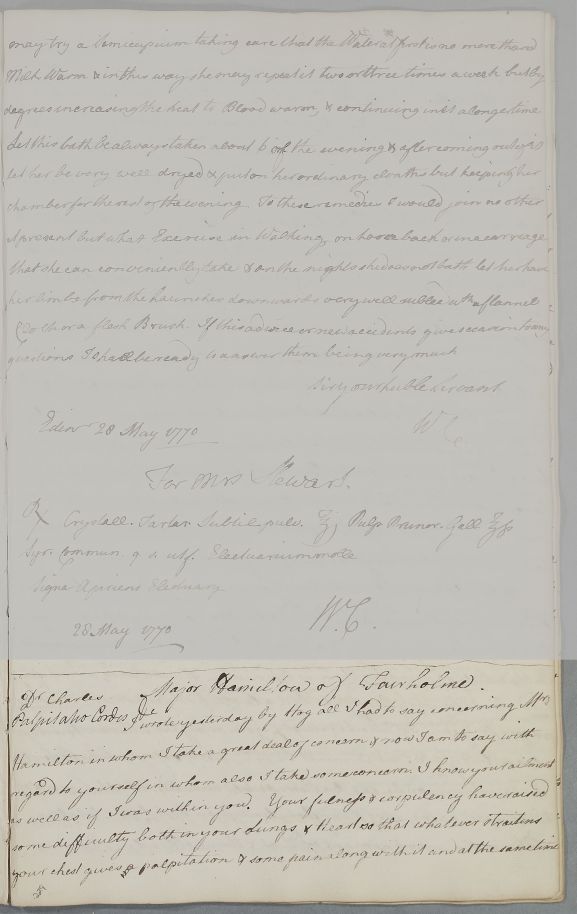 may try a Semicupium taking care that the Water at first is no more than
Milk Warm & in this way she may repeat it two or three times a week but by
degrees increasing the heat to Blood warm, & continuing in it a longer time
Let this bath be always taken about 6 of the evening & after coming out of it
let her be very well dryed & put on her ordinary cloaths but keeping her
chamber for the rest of the evening. To these remedies I would join no other
at present but what Exercise in Walking, on horse back or in a carriage
that she can conveniently take & on the nights she does not bath let her have
her limbs from the haunches downwards very well rubbed wth a flannel
Cloth or a flesh Brush. If this advice or new accidents give occasion to any
questions I shall be ready to answer them being very much
Sir your huble Servant
Edinr 28 May 1770
WC
For Mrs Stewart.
℞ Crystall. Tartar Subtil. pulv. ℥j Pulp Prunor. Gall ℥jß
Syr. Commun. q. s. utf. Electuarium molle
Signa Aperient Electuary
28 May 1770
W.C.
Major Hamilton of Fairholme.
Dr Charles
Palpitatio Cordis &c
I wrote yesterday by Hry all I had to say concerning Mrs
Hamilton in whom I take a great deal of concern & now I am to say with
regard to yourself in whom also I take some concern. I know your ailment
as well as if I was within you. Your fulness & corpulency have raised
some difficulty both in your Lungs & Heart so that whatever straitens
your chest gives a palpitation & some pain along with it and at the same time